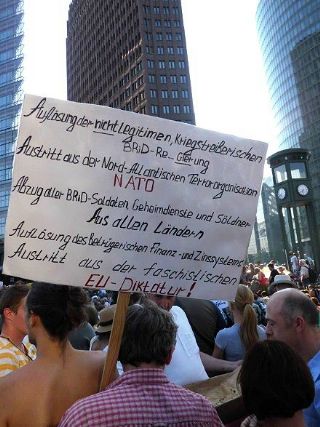 Auflösung der nicht legitimen, Kriegstreiberischen
BRiD-Re_gierung
Austritt aus der Nord-Atlantischen Terrororganisation
NATO
Abzug aller BRiD-Soldaten, Geheimdienste und Söldner
Aus allen Ländern
Auflösung des betrügerischen Finanz- und Zinssystems
Austritt aus der faschistischen
EU-Diktatur!